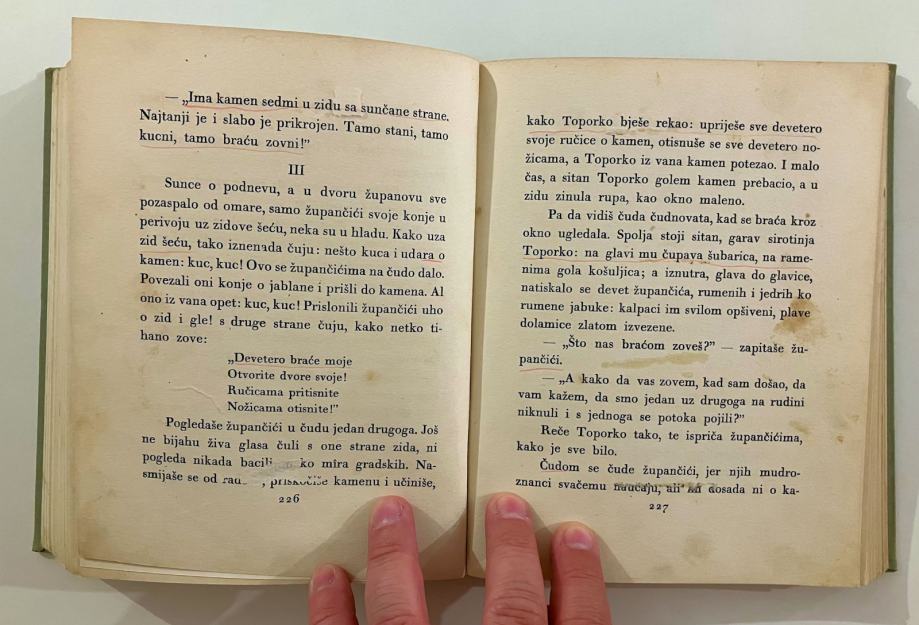 — „Ima kamen sedmi u zidu sa sunčane strane.
Najtanji je i slabo je prikrojen. Tamo stani, tamo
kucni, tamo braću zovni!”
III
Sunce o podnevu, a u dvoru županovu sve
pozaspalo od omare, samo župančići svoje konje u
perivoju uz zidove šeću, neka su u hladu. Kako uza
zid šeću, tako iznenada čuju: nešto kuca i udara o
kamen: kuc, kuc! Ovo se župančićima na čudo dalo.
Povezali oni konje o jablane i prišli do kamena. Al
ono iz vana opet: kuc, kuc! Prislonili župančići uho
o zid i gle! s druge strane čuju, kako netko ti-
hano zove:
„Devetero braće moje
Otvorite dvore svoje!
Ručicama pritisnite
Nožicama otisnite!”
Pogledaše župančići u čudu jedan drugoga. Još
ne bijahu živa glasa čuli s one strane zida, ni
pogleda nikada ko mira gradskih. Na-
smijaše se od priskočiše kamenu i učiniše,
226
kako Toporko bješe rekao: upriješe sve devetero
svoje ručice o kamen, otisnuše se sve devetero no-
žicama, a Toporko iz vana kamen potezao. I malo
čas, a sitan Toporko golem kamen prebacio, a u
zidu zinula rupa, kao okno maleno.
Pa da vidiš čuda čudnovata, kad se braća kroz
okno ugledala. Spolja stoji sitan, garav sirotinja
Toporko: na glavi mu čupava šubarica, na rame-
nima gola košuljica; a iznutra, glava do glavice,
natiskalo se devet župančića, rumenih i jedrih ko
rumene jabuke: kalpaci im svilom opšiveni, plave
dolamice zlatom izvezene.
— „Što nas braćom zoveš?” — zapitaše žu-
pančići.
— „A kako da vas zovem, kad sam došao, da
vam kažem, da smo jedan uz drugoga na rudini
niknuli i s jednoga se potoka pojili?”
Reče Toporko tako, te ispriča župančićima,
kako je sve bilo.
Čudom se čude župančići, jer njih mudro-
znanci svačemu naučaju, ali im dosada ni o ka-
227